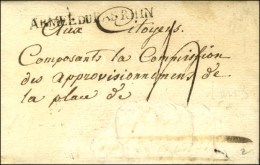 ARMÉE DU BAS RHIN
Aux Citoyens.
Composants la Commission
des approvisionnemens de
la place de